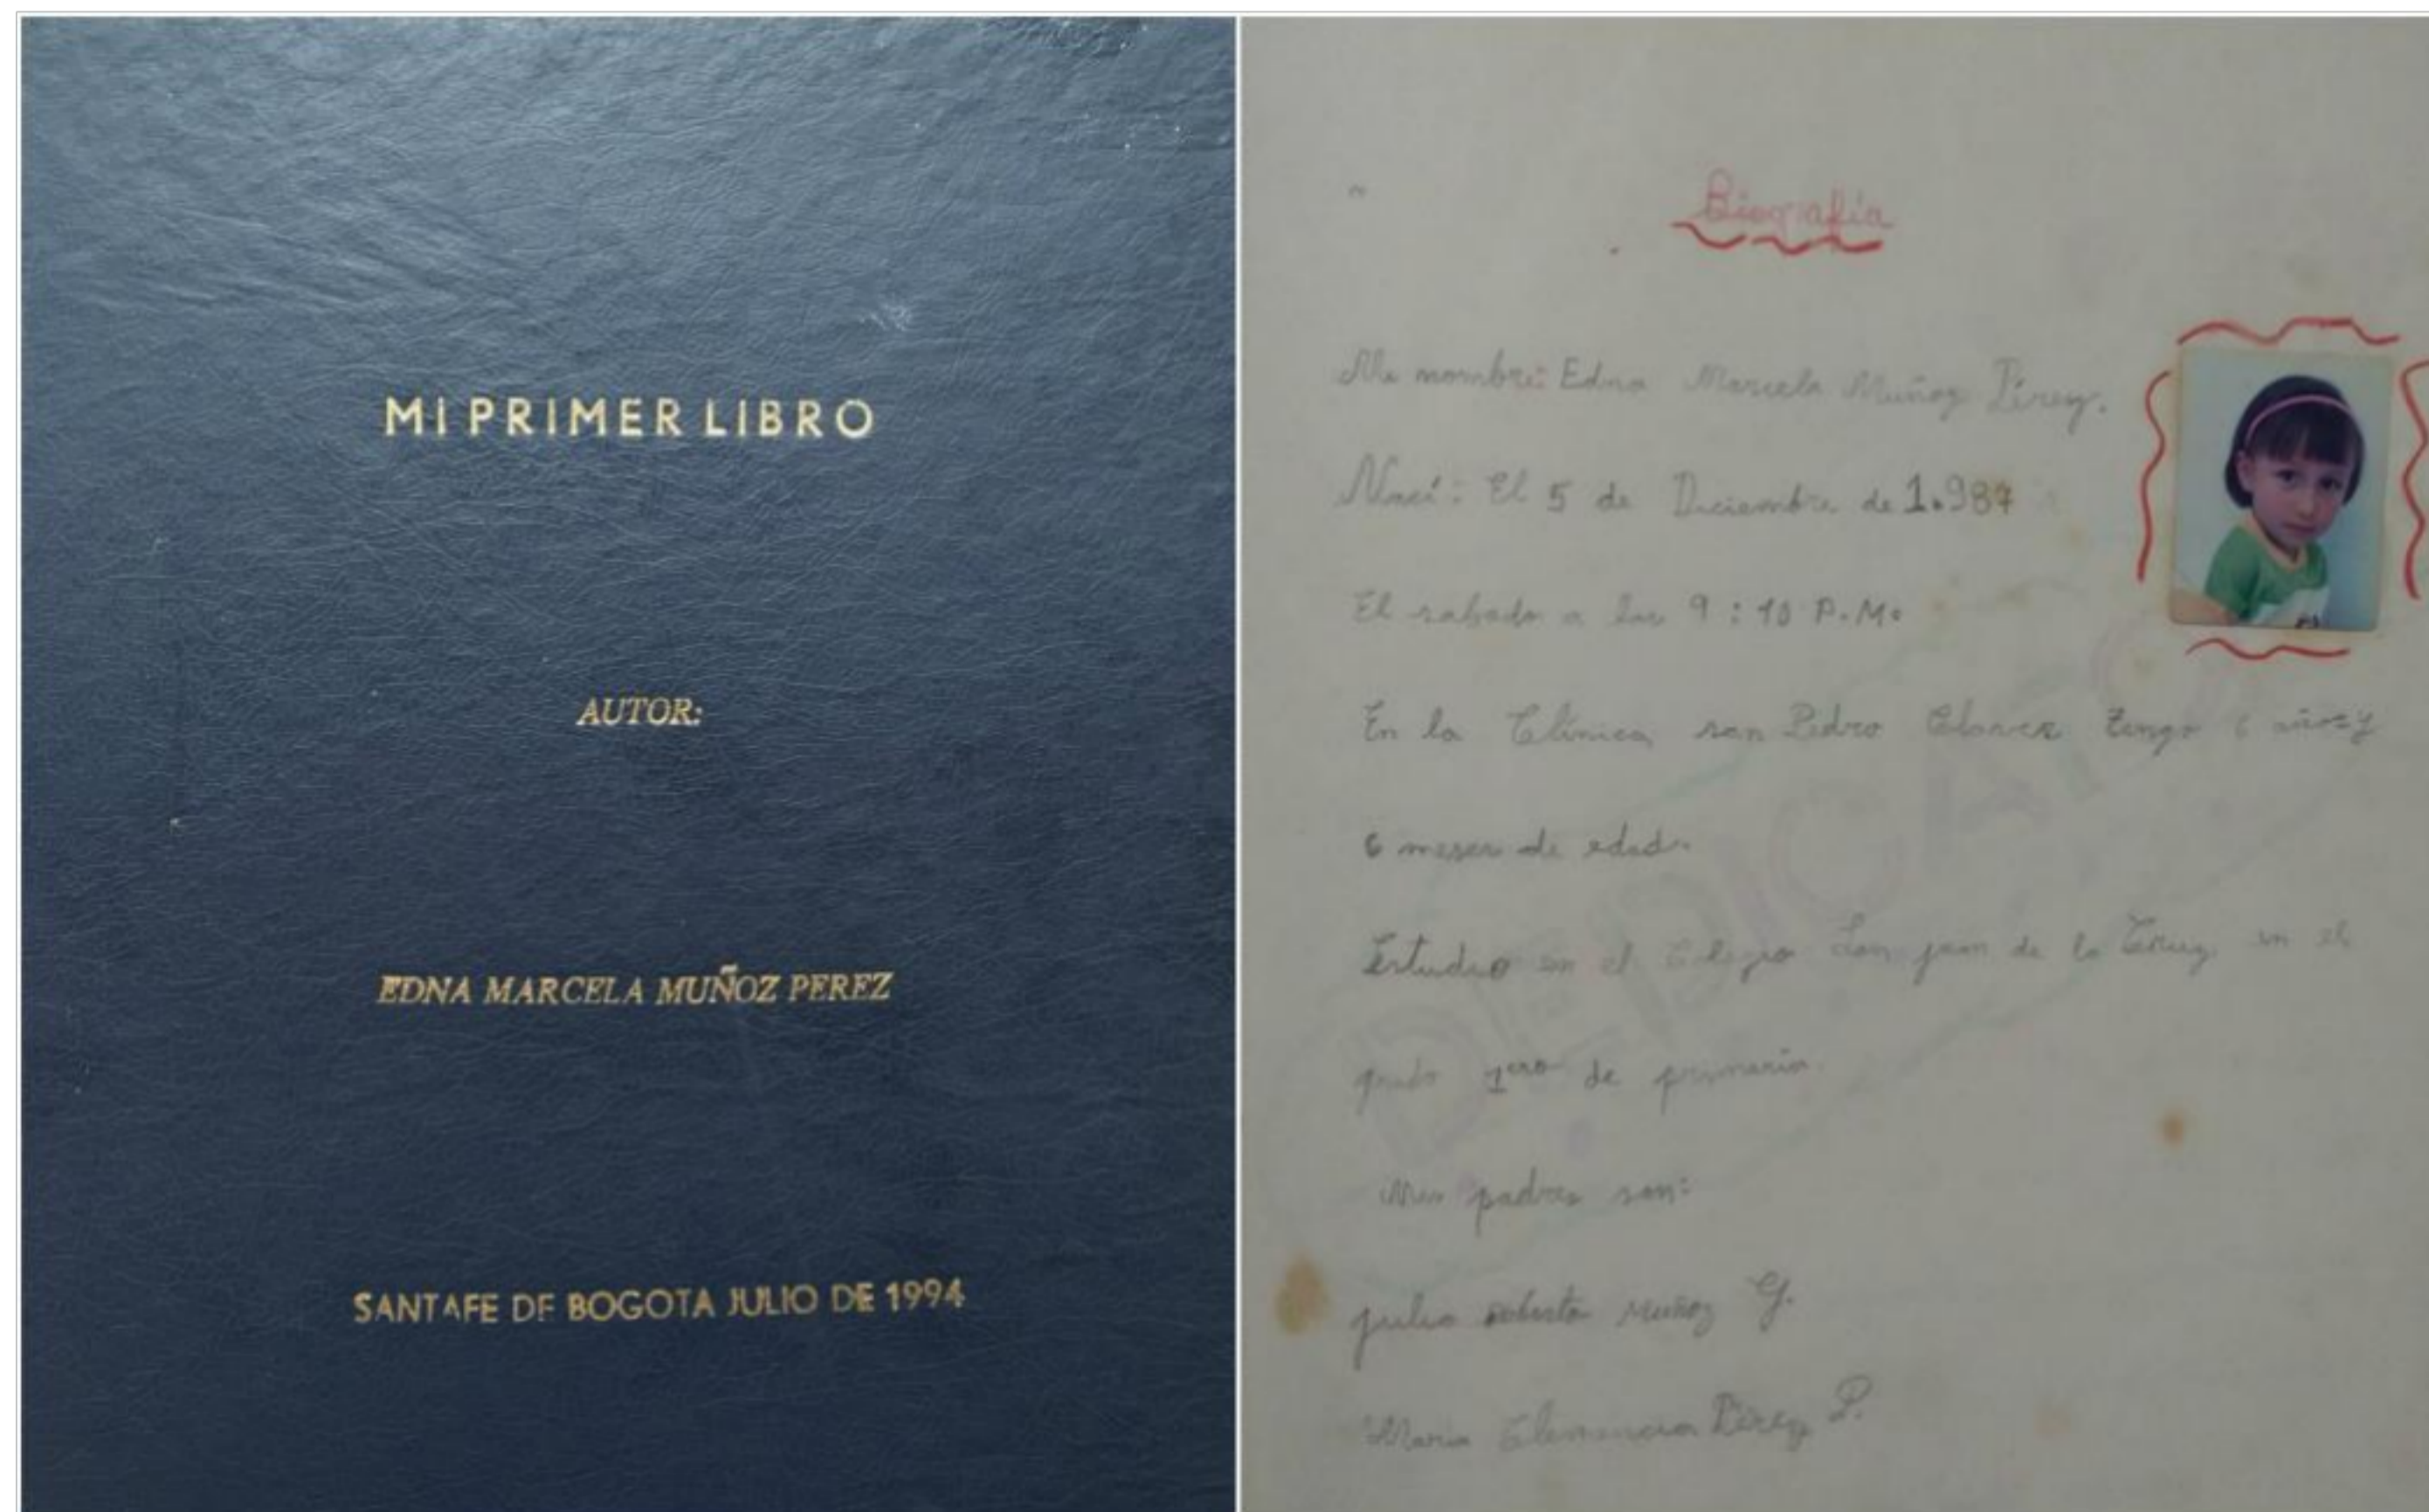 MI PRIMER LIBRO
AUTOR:
EDNA MARCELA MUÑOZ PEREZ
SANTAFE DE BOGOTA JULIO DE 1994
Biografía
Mi nombre: Edna Marcela Muñoz Pérez.
Nací: El 5 de Diciembre de 1.987
El sabado a las 9:10 P.M.
En la Clínica san Pedro Claver tengo 6 años y
6 meses de edad.
Estudio en el Colegio San juan de la Cruz, en el
grado 1ero de primaria.
Mis padres son:
julio roberto muñoz G.
Maria Clemencia Pérez P.
DEDICA